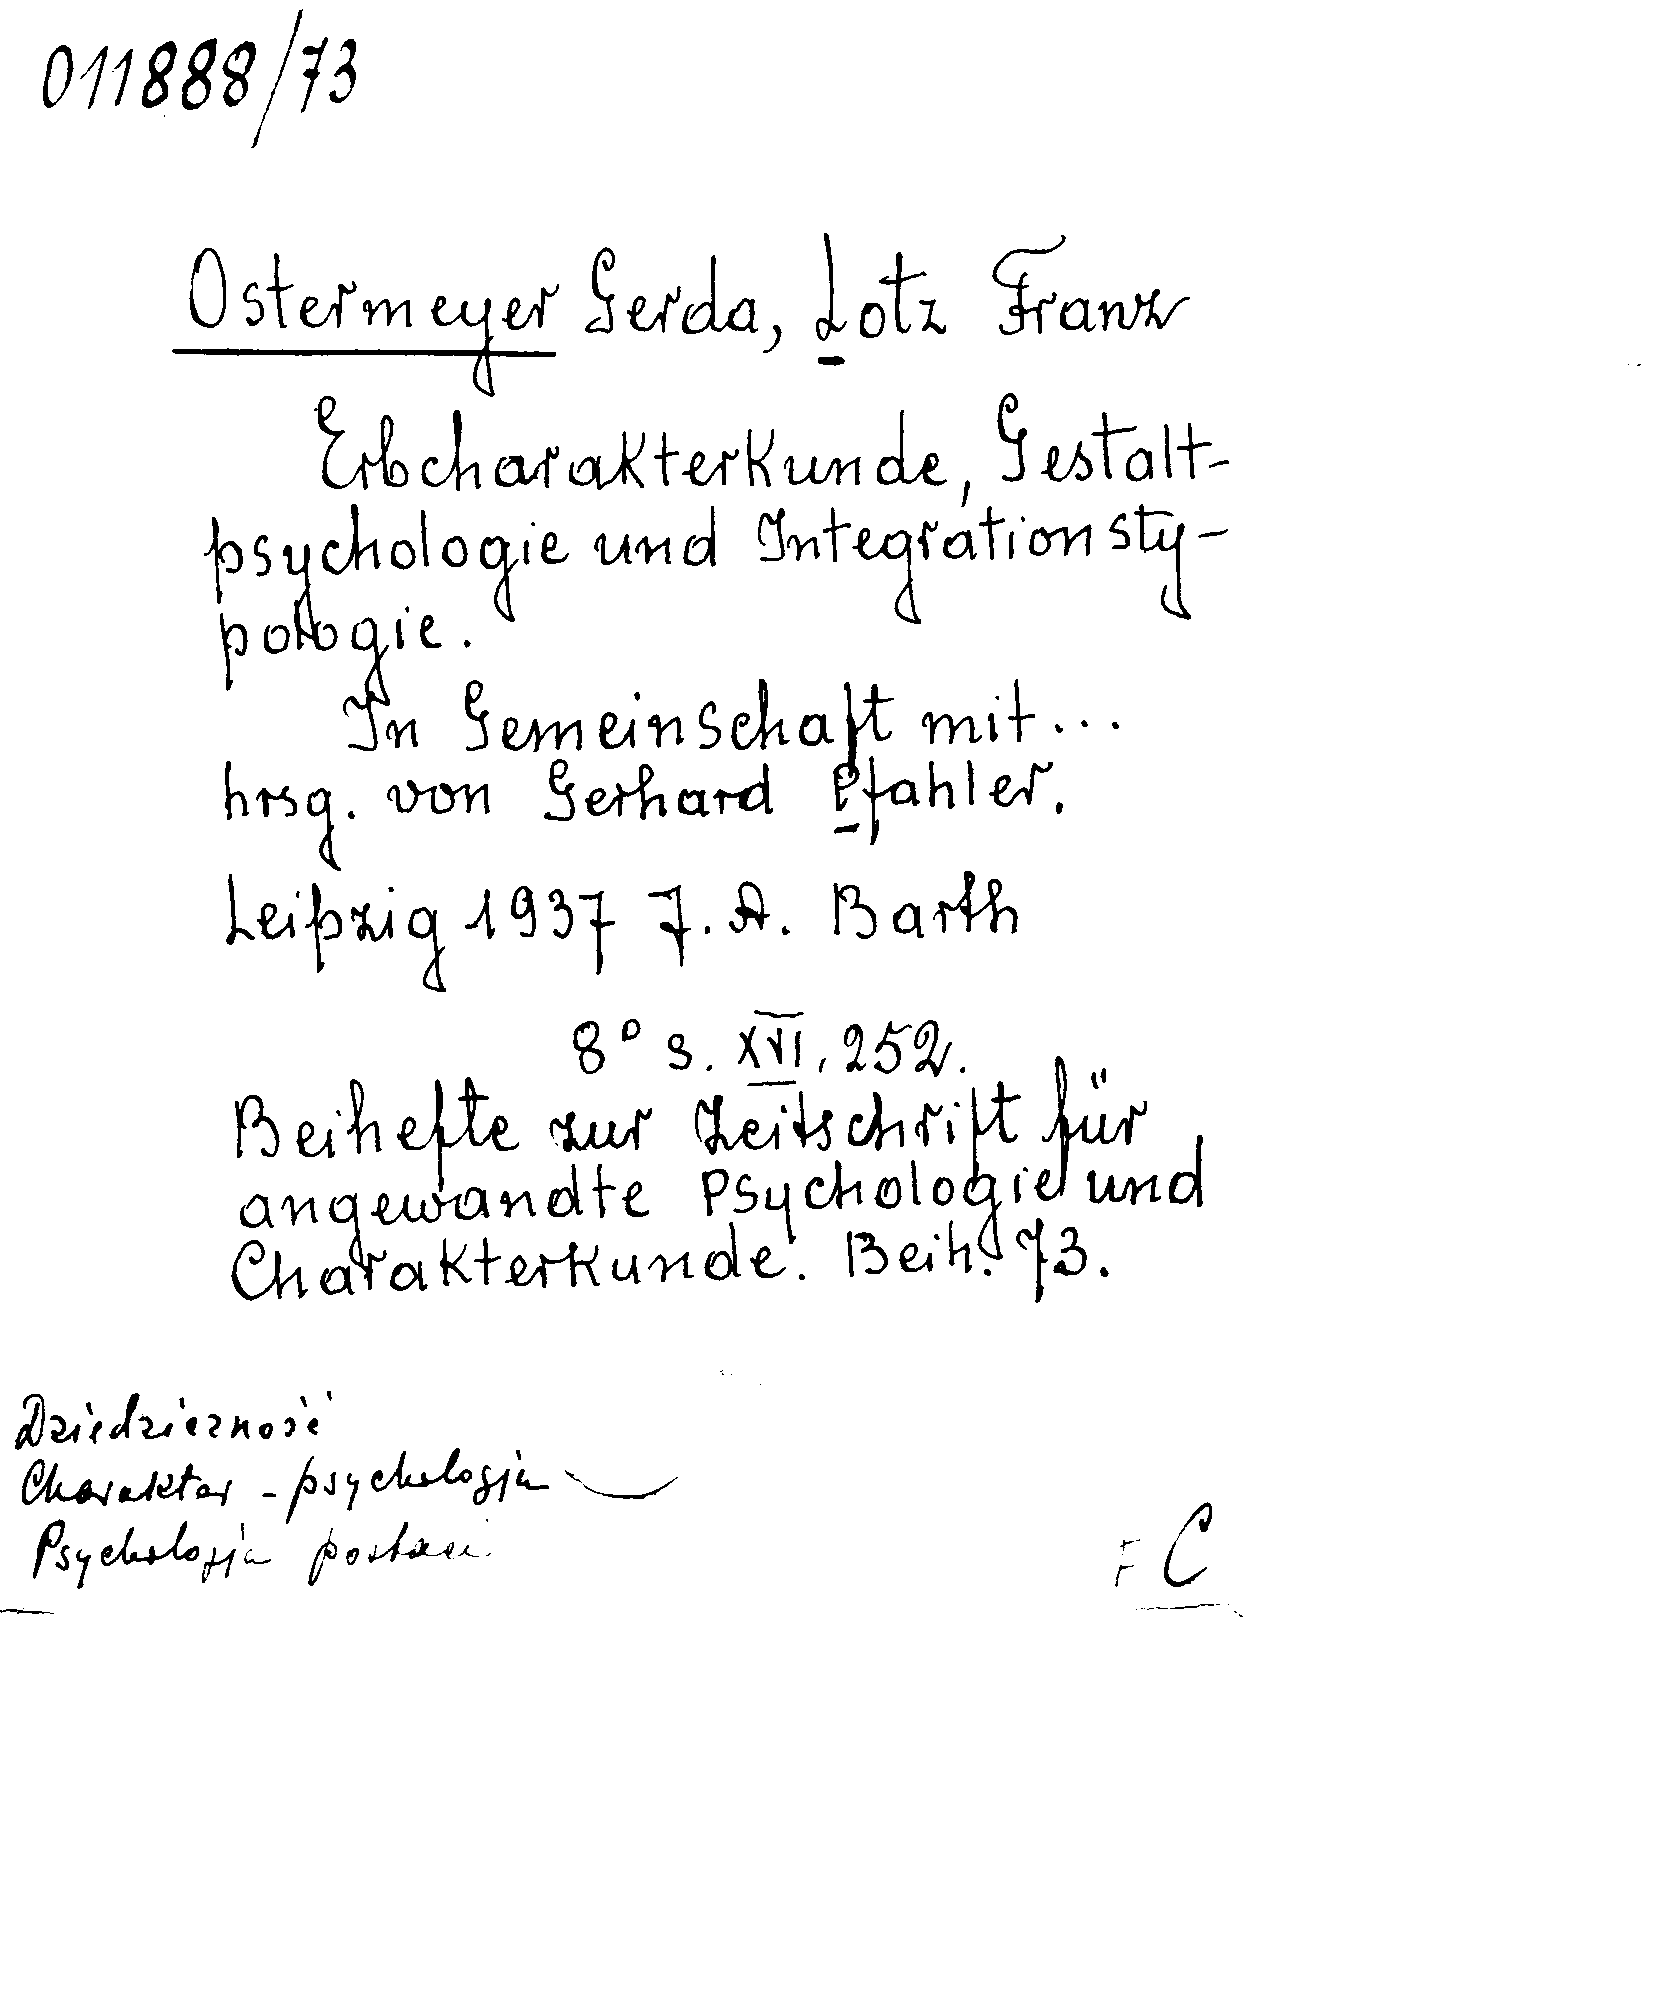 011888/73
Ostermeyer Gerda, Lotz Franz
Erbcharakterkunde, Gestalt-
psychologie und Integrationsty-
pologie.
In Gemeinschaft mit...
hrsg. von Gerhard Pfahler.
Leipzig 1937 J. A. Barth
8° s. XVI, 252.
Beihefte zur Zeitschrift für
angewandte Psychologie und
Charakterkunde. Beih. 73.
Dziedziczność
Charakter - psychologia
Psychologia postaci
F C